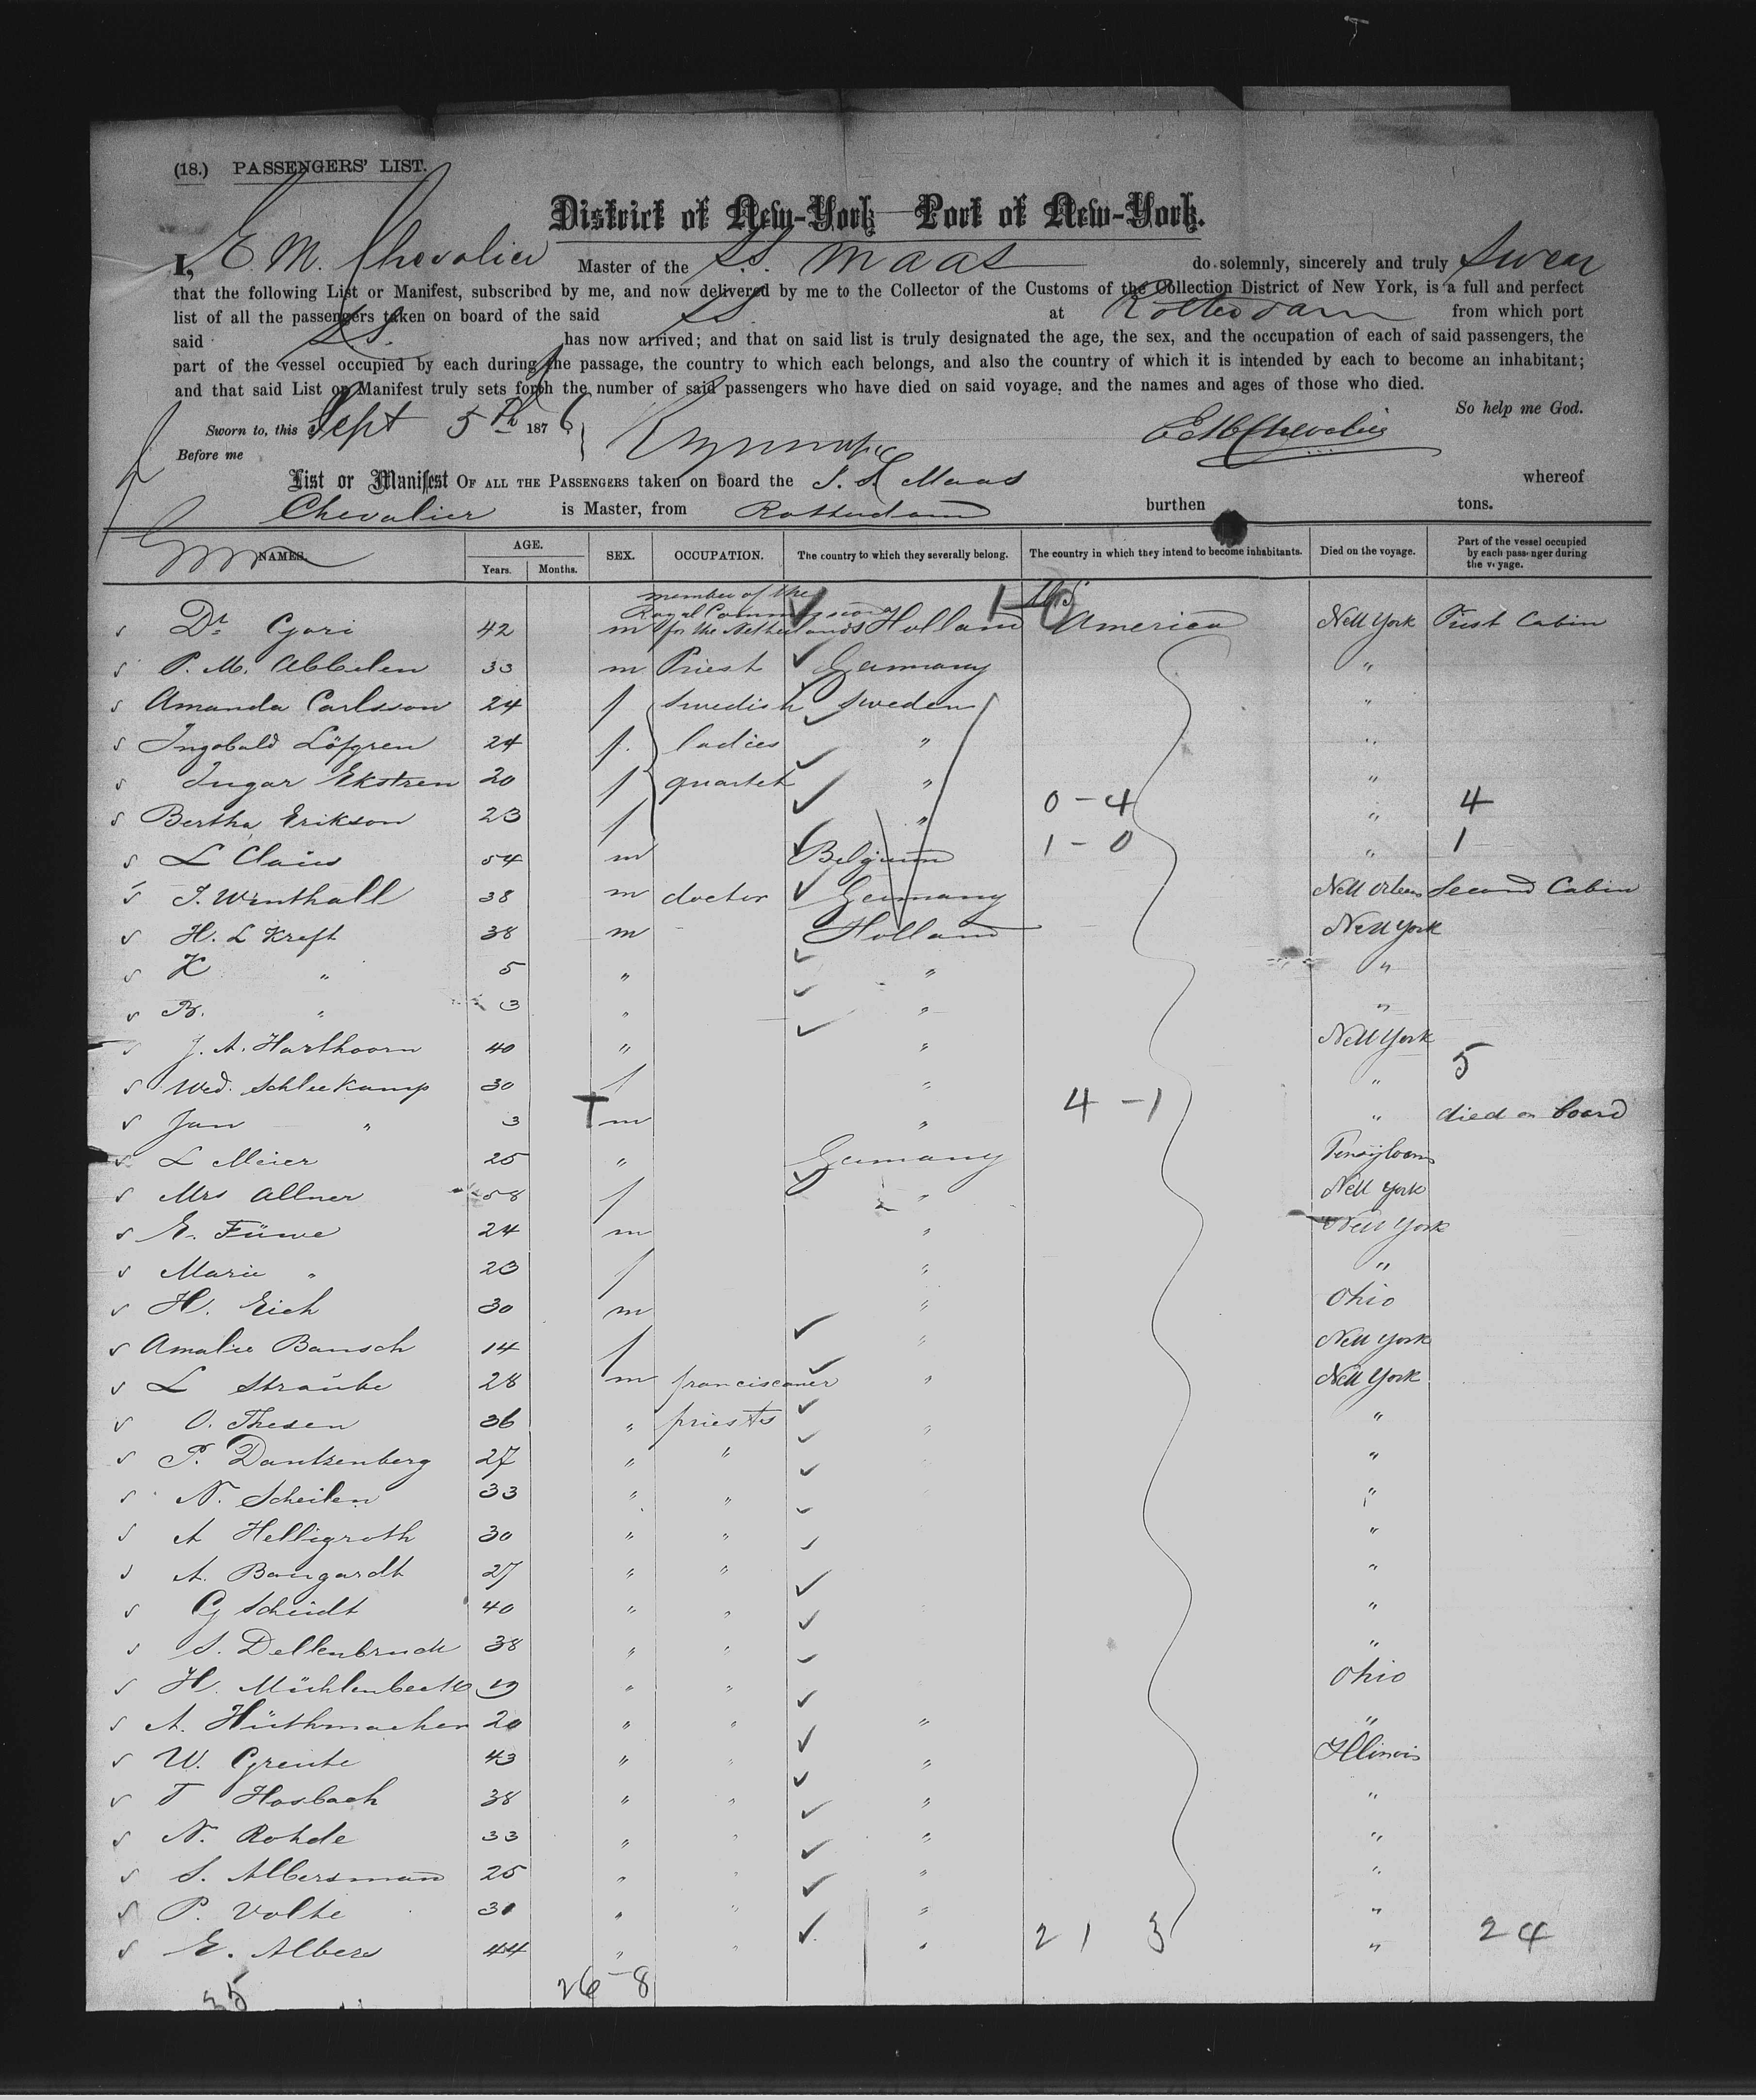 (18.) PASSENGERS' LIST.
District of New-York—Port of New-York.
I, E. M. Chevalier Master of the S.S. Maas do solemnly, sincerely and truly swear
that the following List or Manifest, subscribed by me, and now delivered by me to the Collector of the Customs of the Collection District of New York, is a full and perfect
list of all the passengers taken on board of the said SS at Rotterdam from which port
said S.S. has now arrived; and that on said list is truly designated the age, the sex, and the occupation of each of said passengers, the
part of the vessel occupied by each during the passage, the country to which each belongs, and also the country of which it is intended by each to become an inhabitant;
and that said List or Manifest truly sets forth the number of said passengers who have died on said voyage, and the names and ages of those who died.
So help me God.
Sworn to, this Sept 5th 1876
Before me
E M Chevalier
List or Manifest OF ALL THE PASSENGERS taken on board the S. S. Maas whereof
Chevalier is Master, from Rotterdam burthen tons.
NAMES. AGE. Years. Months. SEX. OCCUPATION. The country to which they severally belong. The country in which they intend to become inhabitants. Died on the voyage. Part of the vessel occupied by each passenger during the voyage.
member of the
Royal Commission US
s Dr. Gori 42 m for the Netherlands Holland America New York First Cabin
s P. M. Abbelen 33 m Priest Germany "
s Amanda Carlsson 24 f swedish Sweden "
s Ingobald Löfgren 24 f. ladies " "
s Ingar Ekstren 20 f quartet " "
s Bertha Erikson 23 f " 0-4 " 4
s L Claius 54 m Belgium 1-0 " 1
s J. Winthall 38 m doctor Germany New Orleans Second Cabin
s H. L Kreft 38 m Holland New York
s K " 5 " " "
s B. " 3 " " "
s J. A. Harthoorn 40 " " New York
s Wed. Schleekamp 30 f " " 5
s Jan " 3 T m " 4-1 " died on board
s L Meier 25 " Germany Pensylvan
s Mrs Allner 58 f " New York
s E. Füwe 24 m " New York
s Marie " 23 f " "
s H. Eich 30 m " Ohio
s Amalie Bansch 14 f " New York
s L Straube 28 m franciscaner " New York
s O. Thesen 36 " priests " "
s P. Dantzenberg 27 " " "
s N. Scheilen 33 " " "
s A Helligroth 30 " " "
s A. Bangardt 27 " " "
s G Scheidt 40 " " "
s S. Dellenbruck 38 " " "
s H. Mühlenbeck 19 " " Ohio
s A. Hüthmacher 20 " " " "
s W. Greute 43 " " " Illinois
s T Hosbach 38 " " " "
s N. Rohde 33 " " " "
s S. Albersman 25 " " " "
s P. Volte 31 " " " "
s E. Albers 44 " " " 21 3 " 24
35 26-8